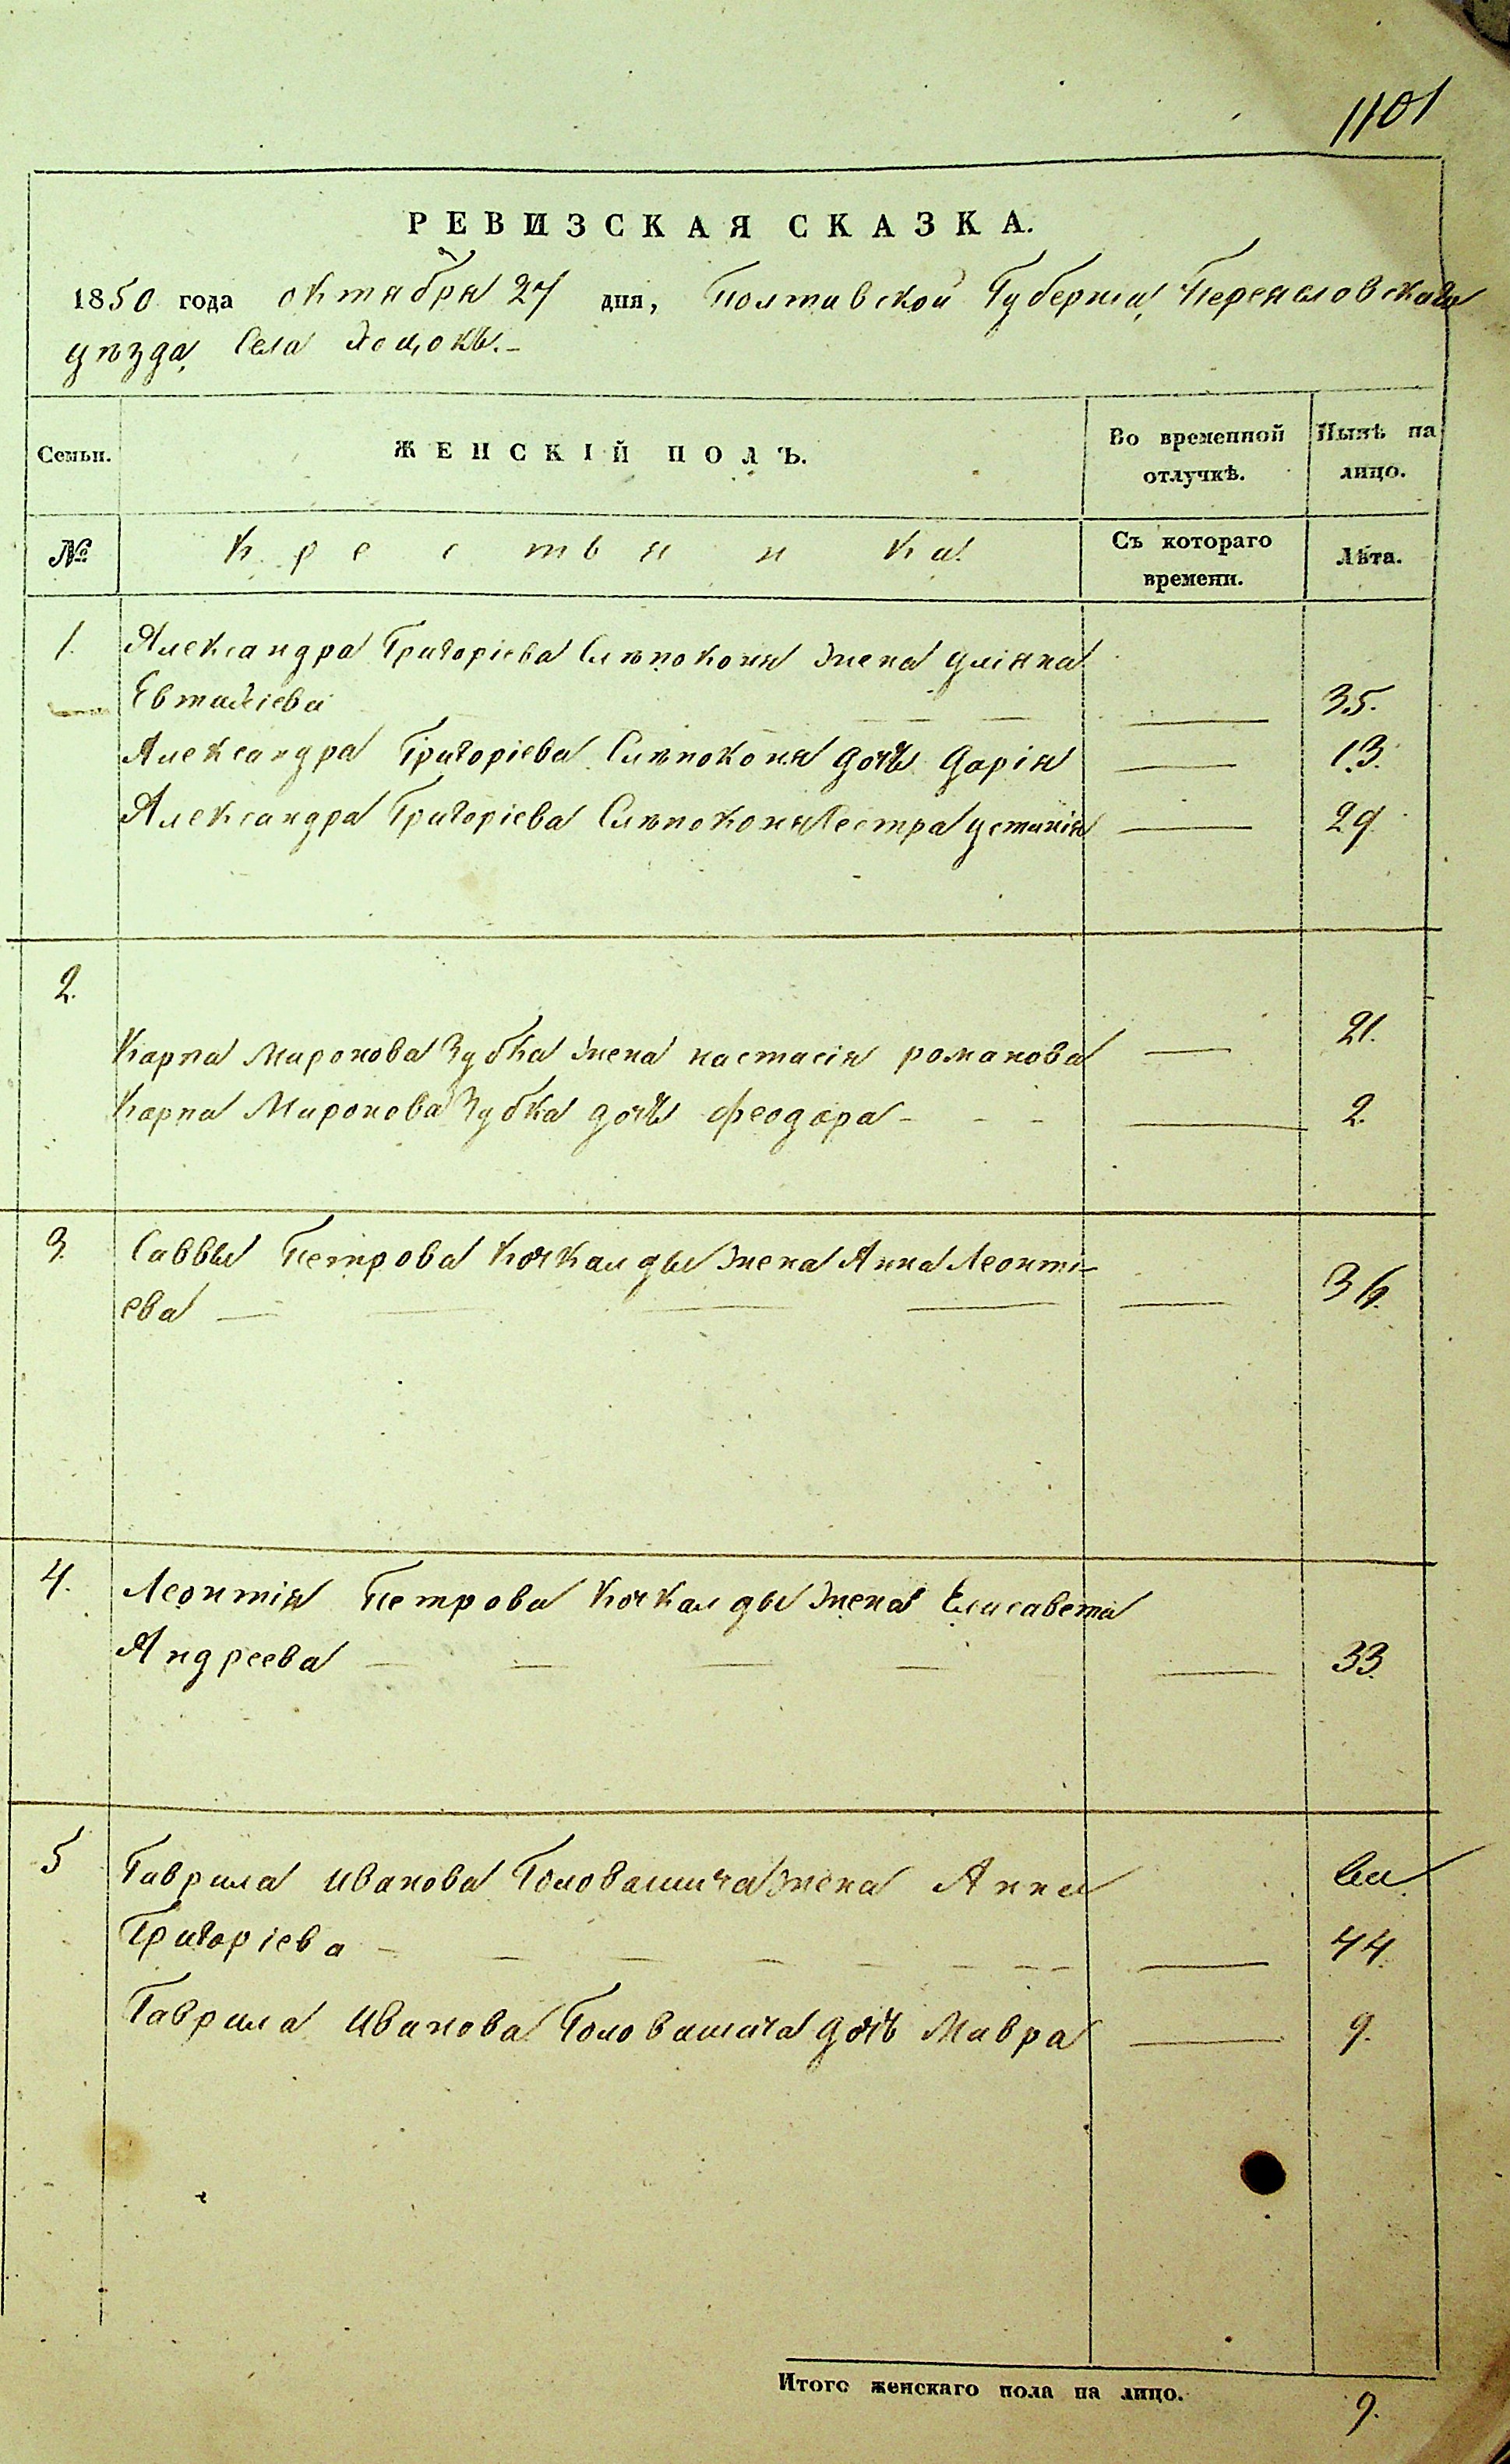 1101
РЕВИЗСКАЯ СКАЗКА.
1850 года октября 27 дня, Полтавской Губернiи, Переяловскаго
уѣзда, Села Хоцокъ.-
Семьи. ЖЕНСКІЙ ПОЛЪ. Во временной отлучкѣ. Нынѣ на лицо.
№ Крестьянки Съ котораго времени. Лѣта.
1. Александра Григорiева Слѣпоконя жена Улiяна
Евтаѳiева 35.
Александра Григорiева Слѣпоконя дочь Дарiя 13.
Александра Григорiева Слѣпоконя Сестра Устинiя 29
2.
Карпа Миронова Зубка жена настасiя романова 21.
Карпа Миронова Зубка дочь феодора 2.
3. Саввы Петрова Кочкалды жена Анна Леонтi-
ева 36.
4. Леонтiя Петрова Кочкалды жена Елисавета
Андреева 33.
5 Гаврила Иванова Головашича жена Анна
Григорiева 44.
Гаврила Иванова Головашича дочь Мавра 9.
Итого женскаго пола на лицо. 9.